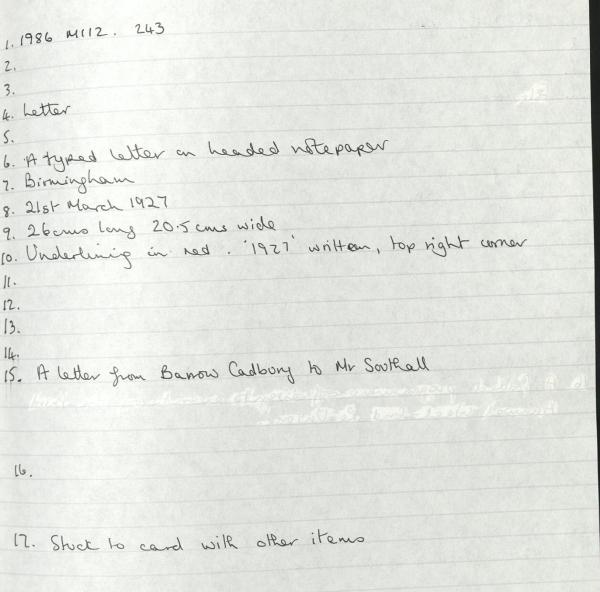 1. 1986 M112. 243
2.
3.
4. Letter
5.
6. A typed letter on headed notepaper
7. Birmingham
8. 21st March 1927
9. 26cms long 20.5 cms wide
10. Underlining in red. '1927' written, top right corner
11.
12.
13.
14.
15. A letter from Barrow Cadbury to Mr Southall
16.
17. Stuck to card with other items